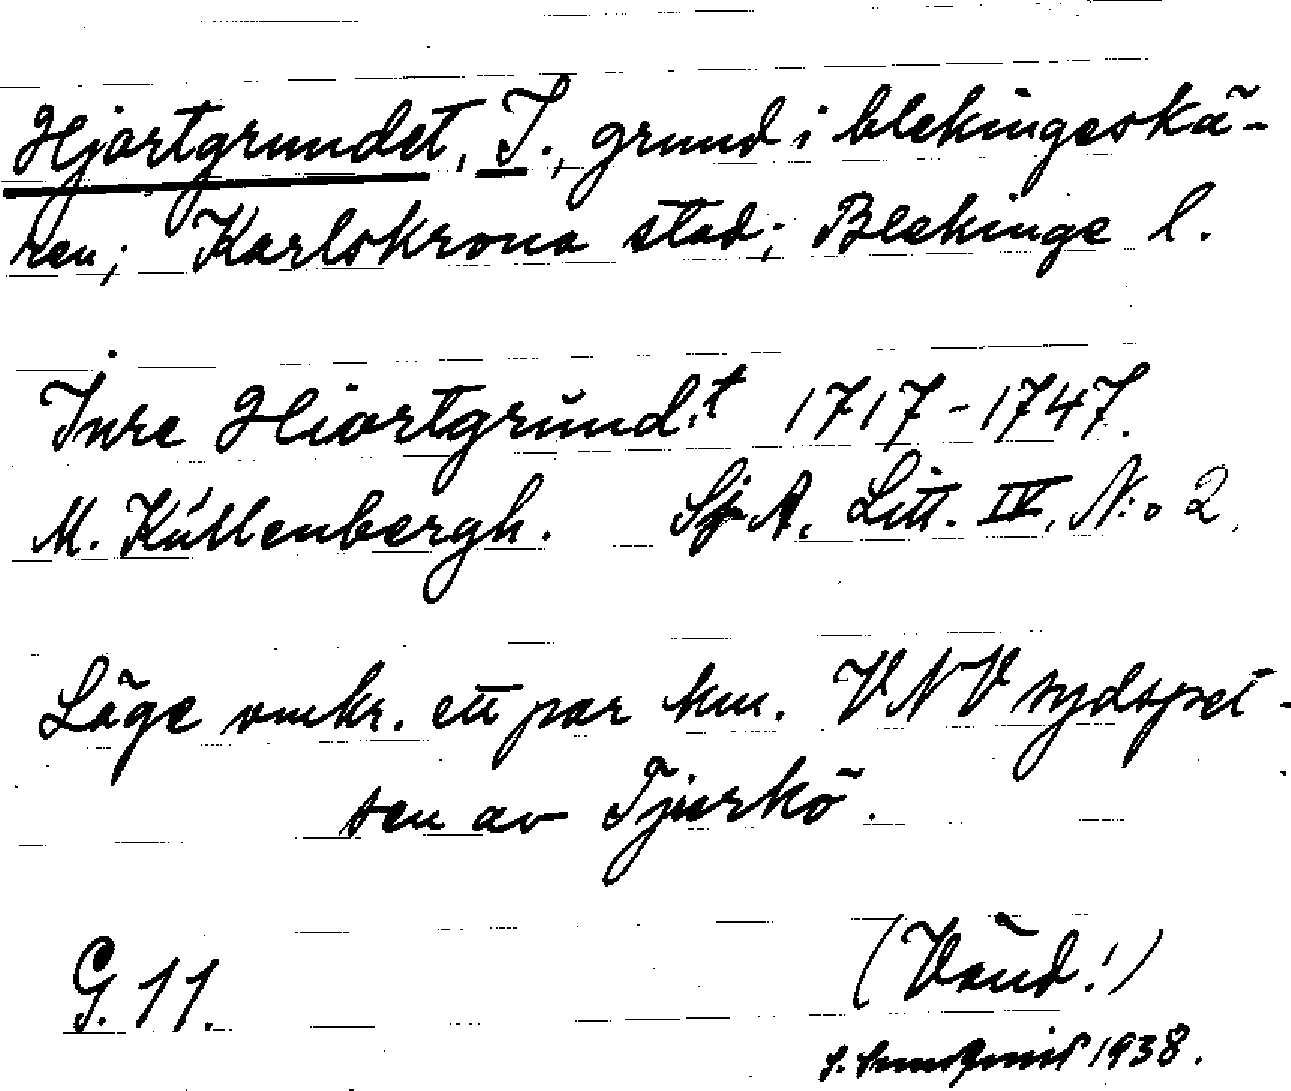 Hjortgrundet, I., grund i blekingeskä-
ren; Karlskrona stad; Blekinge l.
Inre Hiortgrund:t 1717-1747.
M. Kúllenbergh. SjA. Litt. IV, N:o 2.
Läge omkr. ett par km. VNV sydspet-
sen av Tjurkö.
G. 11.
(Vänd!)
1938.